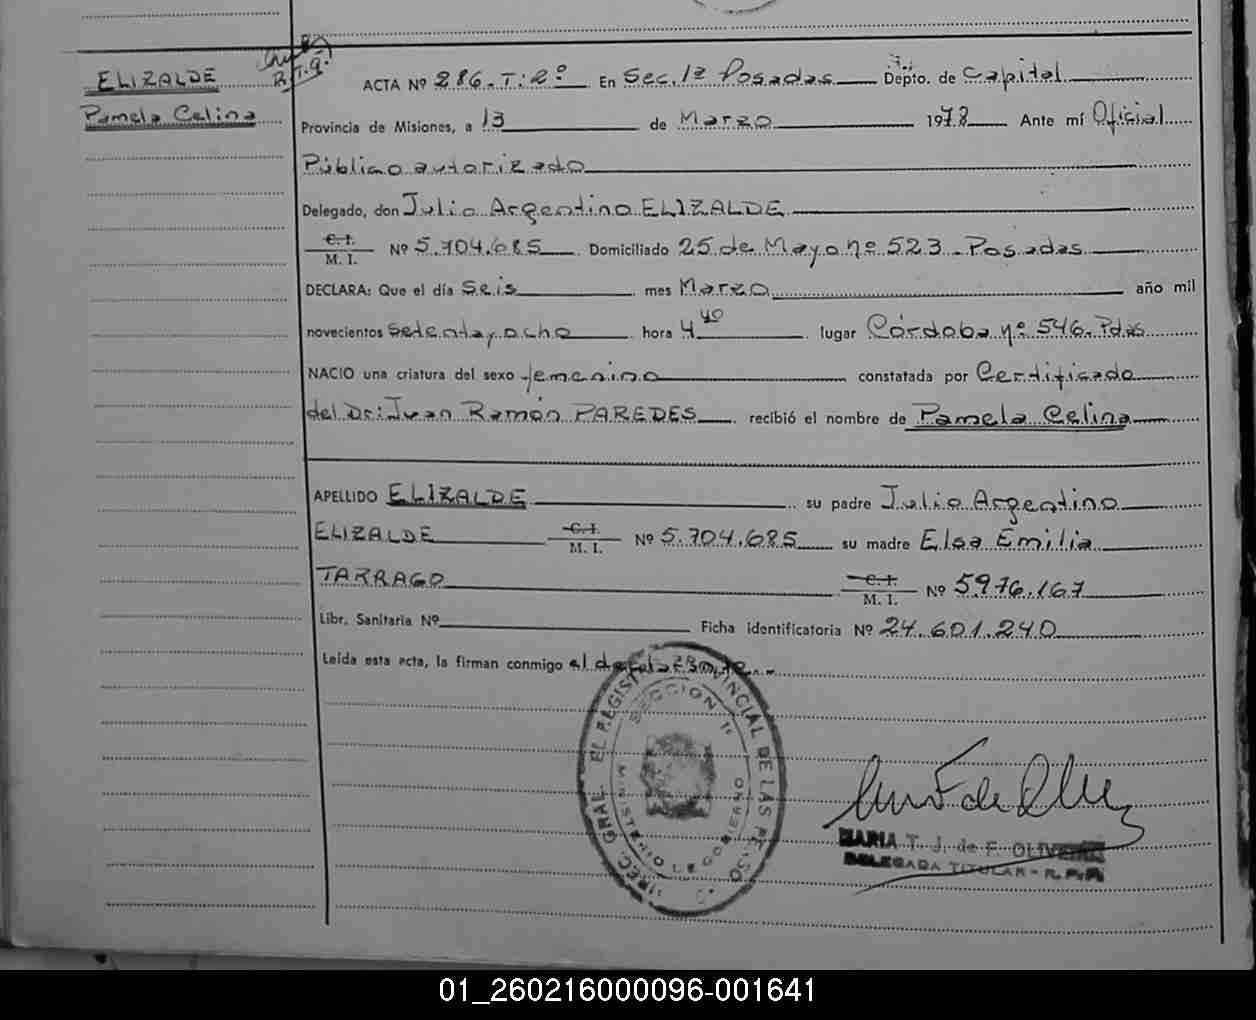 ELIZALDE
Pamela Celina
ACTA Nº 286. T: 2º En Sec. 1ª Posadas Depto. de Capital
Provincia de Misiones, a 13 de Marzo 1978 Ante mí Oficial
Público autorizado
Delegado, don Julio Argentino ELIZALDE
C. I.
M. I. Nº 5.704.685 Domiciliado 25 de Mayo nº 523 - Posadas
DECLARA: Que el día Seis mes Marzo año mil
novecientos setenta y ocho hora 4 40 lugar Córdoba nº 546. Pdas
NACIO una criatura del sexo femenino constatada por Certificado
del Dr: Juan Ramón PAREDES recibió el nombre de Pamela Celina
APELLIDO ELIZALDE su padre Julio Argentino
ELIZALDE C. I. M. I. Nº 5.704.685 su madre Elsa Emilia
TARRAGO C. I. M. I. Nº 5976.167
Libr. Sanitaria Nº Ficha identificatoria Nº 24.601.240
Leída esta acta, la firman conmigo el declarante
DIREC. GRAL. EL REGISTRO PROVINCIAL DE LAS PERSO
SECCION 1º
MINISTERIO DE GOBIERNO
MARIA T. J. de F. OLIVEIRA
DELEGADA TITULAR - R. P. P.
01_260216000096-001641